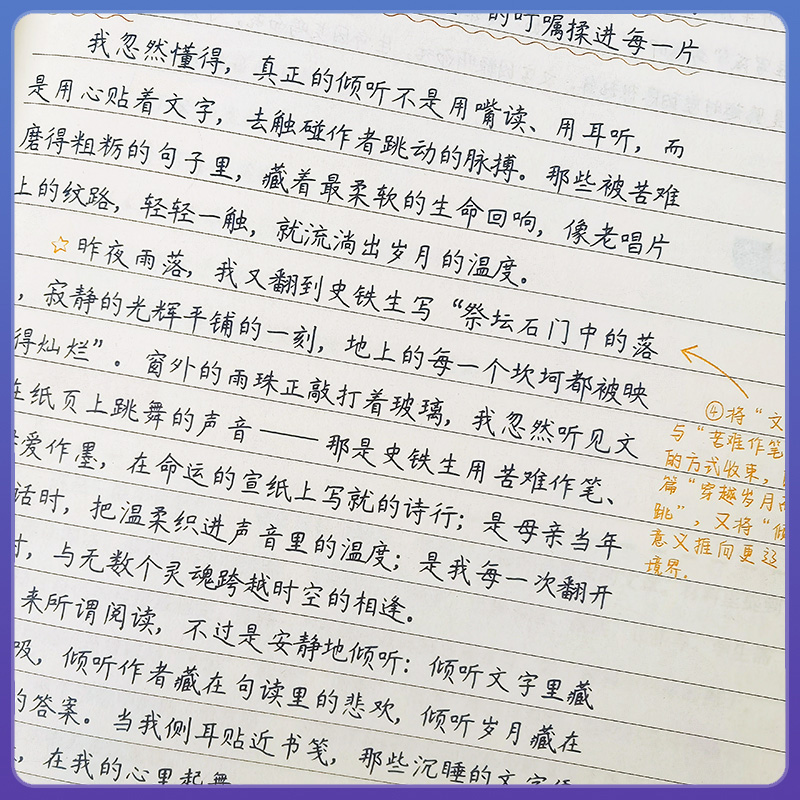 的叮嘱揉进每一片
我忽然懂得，真正的倾听不是用嘴读、用耳听，而
是用心贴着文字，去触碰作者跳动的脉搏。那些被苦难
磨得粗粝的句子里，藏着最柔软的生命回响，像老唱片
上的纹路，轻轻一触，就流淌出岁月的温度。
☆昨夜雨落，我又翻到史铁生写“祭坛石门中的落
，寂静的光辉平铺的一刻，地上的每一个坎坷都被映
得灿烂”。窗外的雨珠正敲打着玻璃，我忽然听见文
在纸页上跳舞的声音——那是史铁生用苦难作笔、
爱作墨，在命运的宣纸上写就的诗行；是母亲当年
话时，把温柔织进声音里的温度；是我每一次翻开
时，与无数个灵魂跨越时空的相逢。
来所谓阅读，不过是安静地倾听：倾听文字里藏
吸，倾听作者藏在句读里的悲欢，倾听岁月藏在
的答案。当我侧耳贴近书笺，那些沉睡的文字
，在我的心里起舞
④将“文
与“苦难作笔
的方式收束，
篇“穿越岁月
跳”，又将“倾
意义推向更
境界。